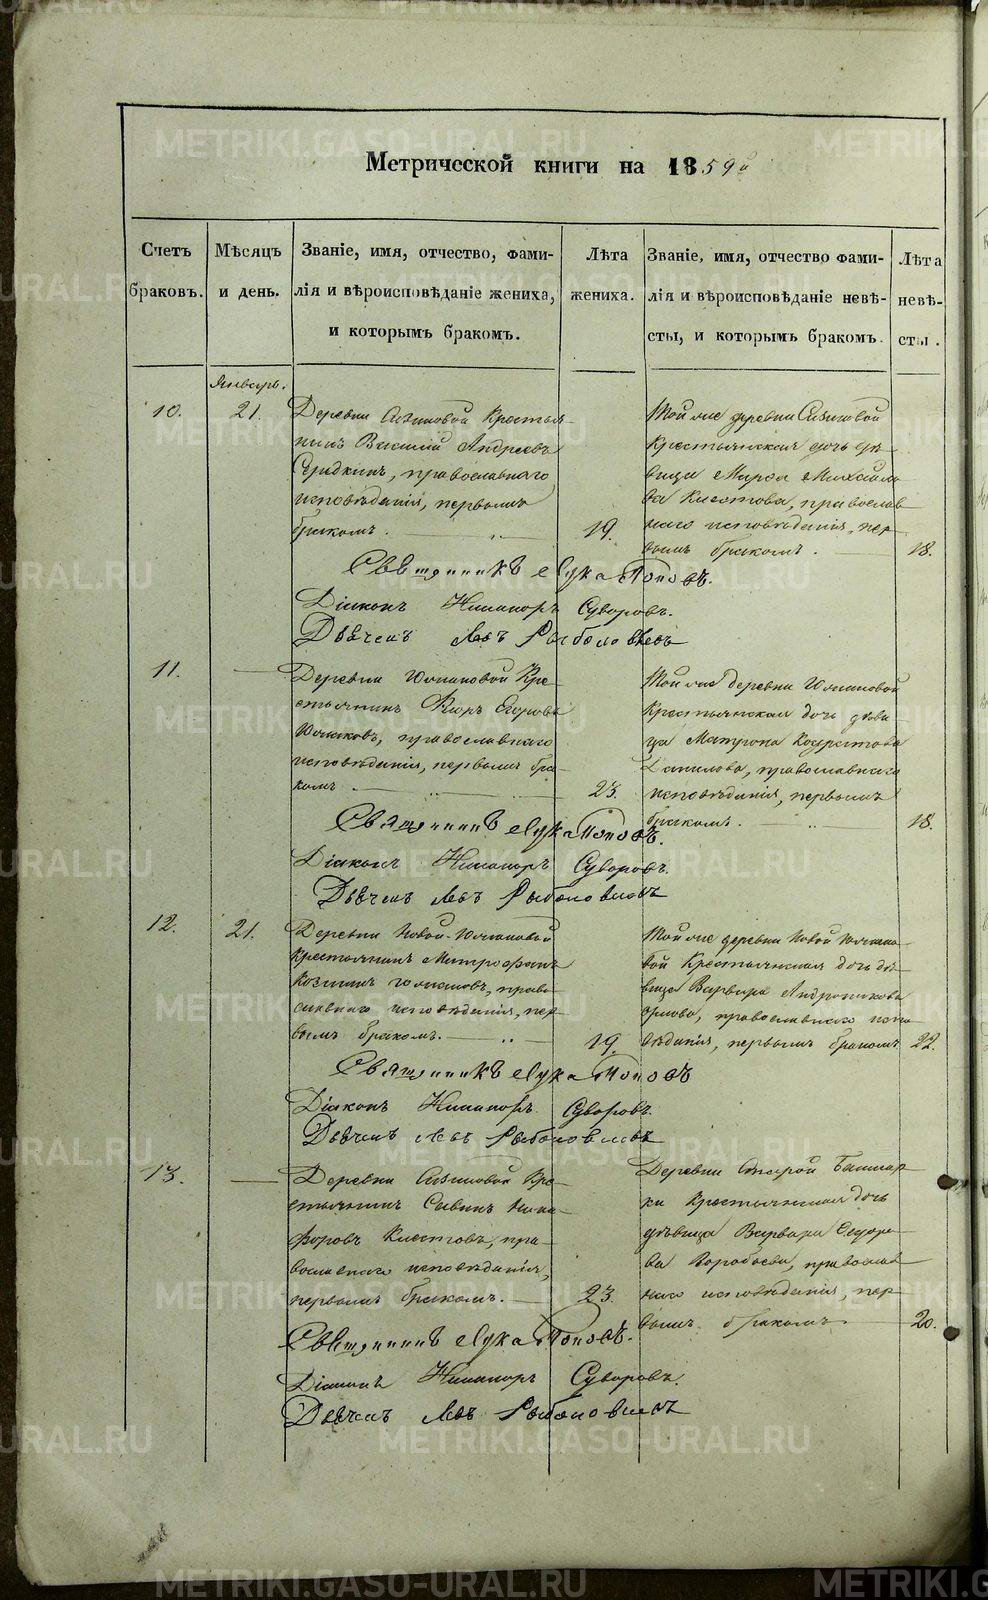 Метрической книги на 1859й
Счетъ браковъ.
Мѣсяцъ и день.
Званіе, имя, отчество, фами-
лія и вѣроисповѣданіе жениха,
и которымъ бракомъ.
Лѣта
жениха.
Званіе, имя, отчество фами-
лія и вѣроисповѣданіе невѣ-
сты, и которымъ бракомъ.
Лѣта
невѣ-
сты.
Январь.
10.
21.
Деревни Сизиковой Крестья-
нинъ Василий Андреевъ
православнаго
исповѣданія, первымъ
бракомъ.
19.
Той же деревни Сизиковой
Крестьянская дочь дѣ-
вица Марфа Михайло-
ва Клестова, православ
наго исповѣданія, пер-
вымъ бракомъ.
18.
Священникъ Лука Поповъ.
Діаконъ Никаноръ Суворовъ.
Дьячекъ Левъ
11.
Деревни Юлаковой Кре-
стьянинъ Егоровъ
Юлаковъ, православнаго
исповѣданія, первымъ бра-
комъ
23.
Той же деревни Юлаковой
Крестьянская дочь дѣви-
ца Матрона Кодратова
Данилова, православнаго
исповѣданія, первымъ
бракомъ.
18.
Священникъ Лука Поповъ.
Діаконъ Никаноръ Суворовъ.
Дьячекъ Левъ
12.
21.
Деревни Новой-Юлаковой
Крестьянинъ Митрофанъ
Козминъ Юлаковъ, право-
славнаго исповѣданія, пер-
вымъ бракомъ.
19.
Той же деревни Новой Юлако-
вой Крестьянская дочь дѣ-
вица Варвара Андроникова
Орлова, православнаго испо-
вѣданія, первымъ бракомъ
22.
Священникъ Лука Поповъ
Діаконъ Никаноръ Суворовъ.
Дьячекъ Левъ
13.
Деревни Сизиковой Кре-
стьянинъ Савинъ Ника-
форовъ Клестовъ, пра-
вославнаго исповѣданія,
первымъ бракомъ.
23.
Деревни Старой Башкар-
ки Крестьянская дочь
дѣвица Варвара Сидоро-
ва Воробьева, православ-
наго исповѣданія, пер-
вымъ бракомъ
20.
Священникъ Лука Поповъ.
Діаконъ Никаноръ Суворовъ.
Дьячекъ Левъ
METRIKI.GASO-URAL.RU